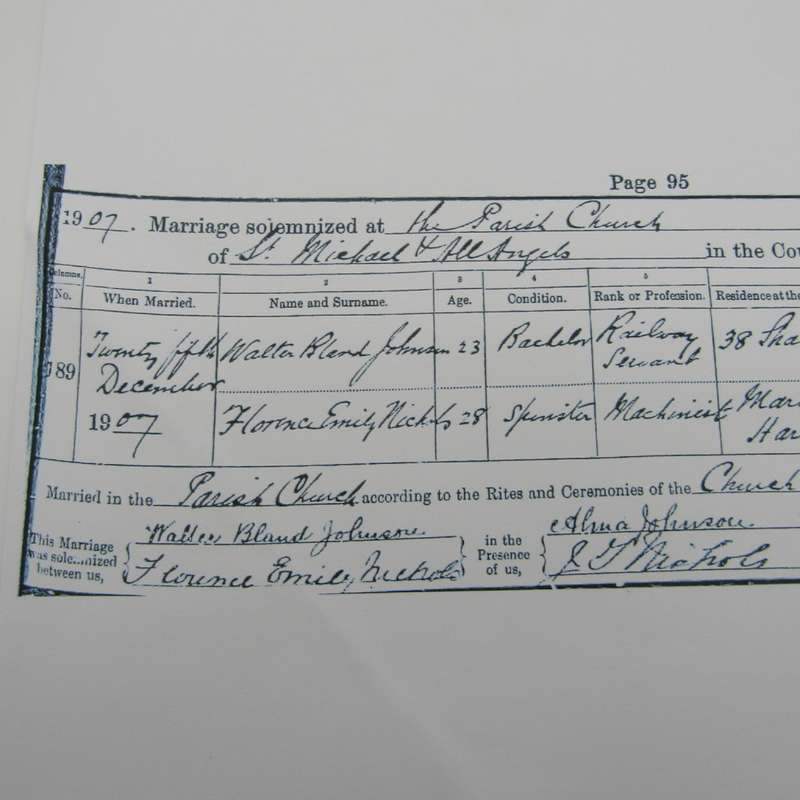 Page 95
1907. Marriage solemnized at the Parish Church
of St. Michael & All Angels in the Cou
Columns. 1 2 3 4 5
No. When Married. Name and Surname. Age. Condition. Rank or Profession. Residence at the
189 Twenty fifth December 1907 Walter Bland Johnson 23 Bachelor Railway Servant 38 Sha
Florence Emily Nichols 28 Spinster Machinist Mar Har
Married in the Parish Church according to the Rites and Ceremonies of the Church
This Marriage was solemnized between us, Walter Bland Johnson in the Presence of us, Alma Johnson
Florence Emily Nichols Nichols